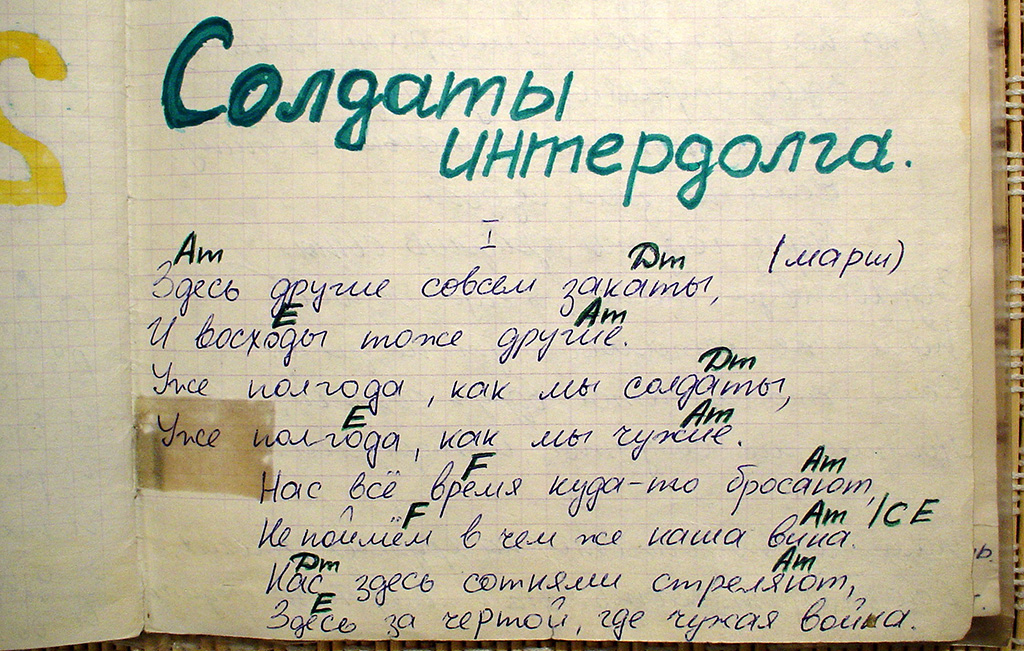 2
Солдаты
интердолга.
I
Am Dm (марш)
Здесь другие совсем закаты,
E Am
И восходы тоже другие.
Dm
Уже полгода, как мы солдаты,
E Am
Уже полгода, как мы чужие.
F Am
Нас всё время куда-то бросают,
F Am /C E
Не поймём в чем же наша вина.
Dm Am
Нас здесь сотнями стреляют,
E
Здесь за чертой, где чужая война.